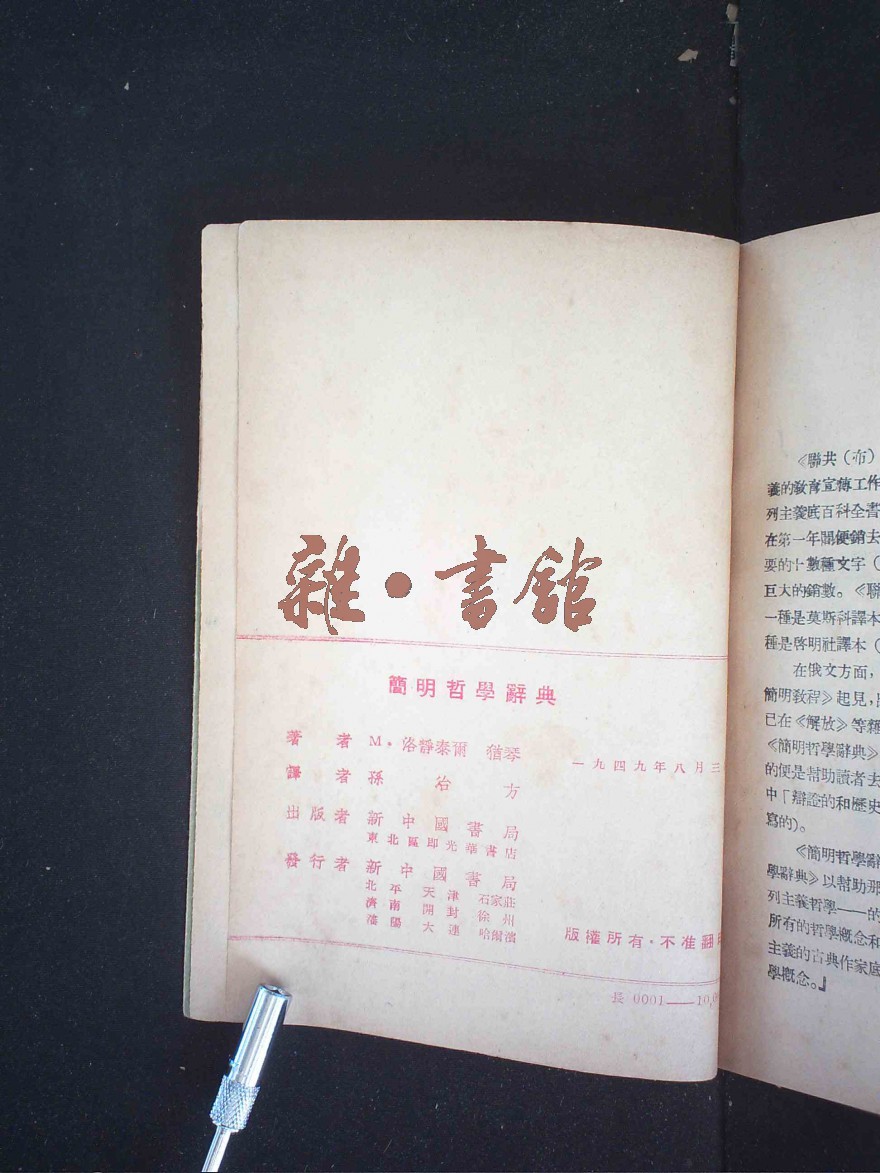 雜·書舘
簡明哲學辭典
著者 M·洛靜泰爾 猶琴
譯者 孫冶方
一九四九年八月三
出版者 新中國書局
東北區即光華書店
發行者 新中國書局
北平 天津 石家莊
濟南 開封 徐州
瀋陽 大連 哈爾濱
版權所有·不准翻印
長 0001——10,0
《聯共（布）
義的敎育宣傳工作
列主義底百科全書
在第一年間便銷去
要的十數種文字（
巨大的銷數。《聯
一種是莫斯科譯本
種是啓明社譯本（
在俄文方面，
簡明敎程》起見，
已在《解放》等雜
《簡明哲學辭典》
的便是幫助讀者去
中「辯證的和歷史
寫的）。
《簡明哲學辭
學辭典》以幫助那
列主義哲學——的
所有的哲學概念和
主義的古典作家底
學概念。」